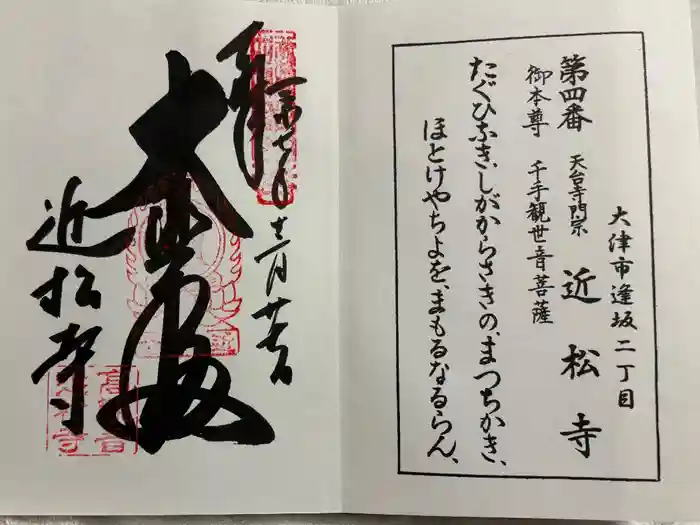 大津市逢坂二丁目
第四番 天台寺門宗 近松寺
御本尊 千手観世音菩薩
たぐひなき、しがからさきの、まつちかき、
ほとけやちよを、まもるなるらん、
奉拝
令和七年十二月廿七日
大悲殿
近松寺